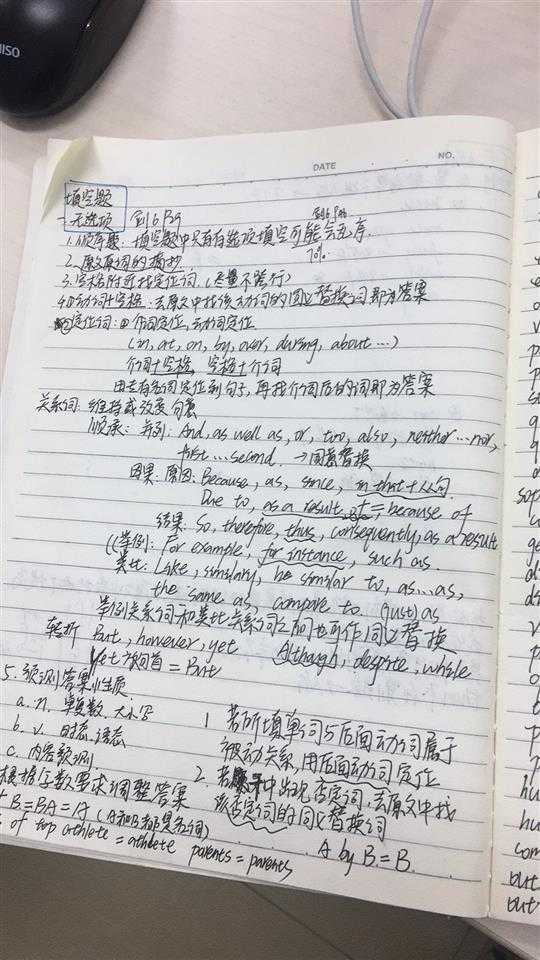 NISO
DATE NO.
填空题
无选项 剑6 P29 剑6 P86
1.顺序题:填空题中只有有选项填空可能会乱序.
70%
2.原文原词的摘抄
3.空格附近找定位词(尽量不跨行)
4.动词+空格:去原文中找该动词的同义替换词即为答案
定位词:①介词定位,动词定位
(in, at, on, by, over, during, about …)
介词+空格,空格+介词
由左右名词定位到句子,再找介词后的词即为答案
关系词:维持或改变句意
顺承:并列:And, as well as, or, too, also, neither…nor,
first … second. → 同意替换
因果:原因:Because, as, since, in that+从句.
Due to, as a result of = because of
结果:So, therefore, thus, consequently, as a result
举例:For example, for instance, such as.
类比:Like, similarly, be similar to, as…as,
the same as, compare to (just) as
举例关系词和类比关系词之间也可作同义替换
转折 But, however, yet Although, despite, while
Yet 放句首 = But
5.预测答案性质
a. n. 单复数. 大小写
b. v. 时态.语态
c. 内容预测
根据字数要求调整答案
B = BA = A (A和B都是名词)
of top athlete = athlete parents = parents
1 若所填单词与后面动词属于
被动关系,用后面动词定位
2. 若题干中出现否定词,去原文中找
该否定词的同义替换词
A by B = B.